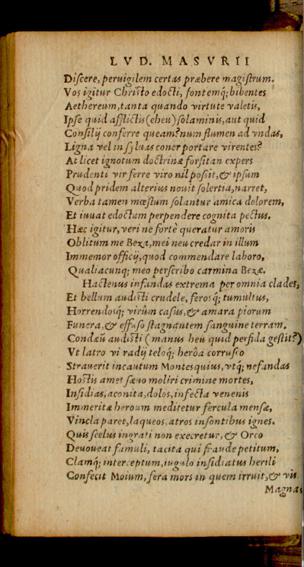 LVD. MASVRII
Discere, peruigilem certas præbere magistrum.
Vos igitur Christo edocti, fontemq; bibentes
Aethereum, tanta quando virtute valetis,
Ipse quid afflictis (eheu) solaminis, aut quid
Consilij conferre queam? num flumen ad vndas,
Ligna vel in syluas coner portare virentes?
At licet ignotum doctrinæ forsitan expers
Prudenti vir ferre viro nil possit, & ipsum
Quod pridem alterius nouit solertia, narret,
Verba tamen mœstum solantur amica dolorem,
Et iuuat edoctum perpendere cognita pectus.
Hæc igitur, veri ne fortè queratur amoris
Oblitum me Beza, mei neu credar in illum
Immemor officij, quod commendare laboro,
Qualiacunq; meo perscribo carmina Bezæ.
Hactenus infandas extrema per omnia clades,
Et bellum audisti crudele, ferosq; tumultus,
Horrendosq; virûm casus, & amara piorum
Funera, & effuso stagnantem sanguine terram.
Condæū audisti (manus heu quid perfida gestit?)
Vt latro vi radij teloq; heröa corrusco
Strauerit incautum Montesquius, vtq; nefandas
Hostis amet sæuo moliri crimine mortes,
Insidias, aconita, dolos, infecta venenis
Immeritæ heroum meditetur fercula mensæ,
Vincla paret, laqueos, atros insontibus ignes.
Quis scelus ingrati non execretur, & Orco
Deuoueat famuli, tacita qui fraude petitum,
Clamq; interceptum, iugulo insidiatus herili
Confecit Moium, fera mors in quem irruit, & vis
Magna